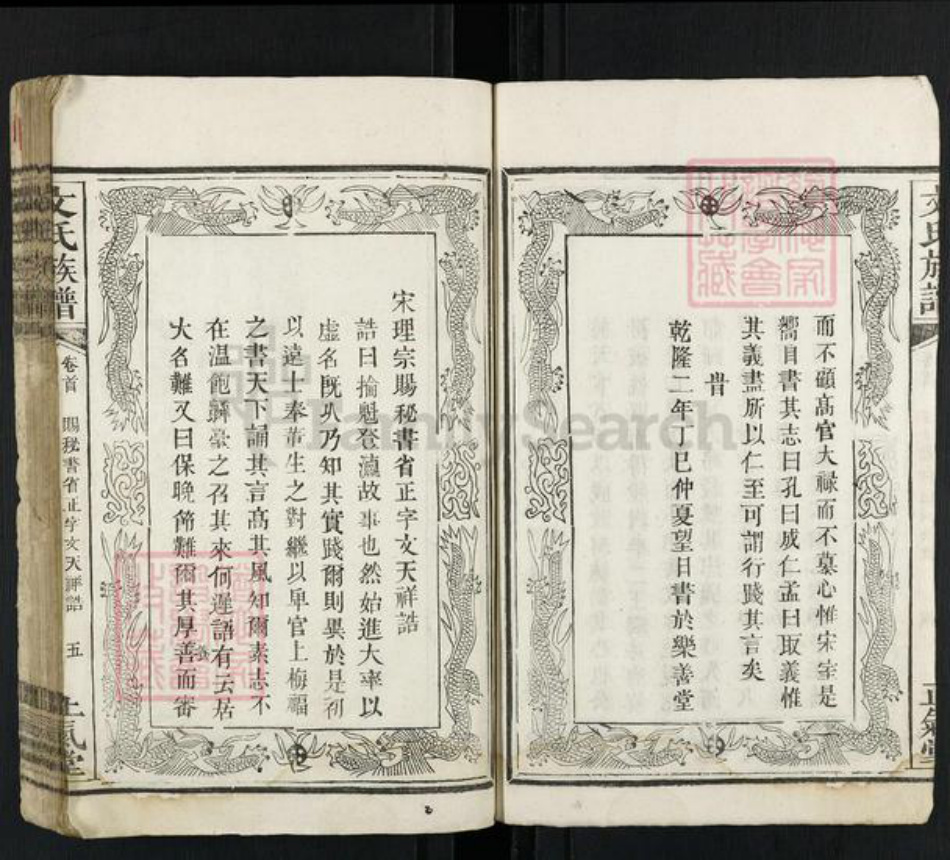 文氏族譜
而不顧髙官大禄而不墓心惟宋室是
嚮自書其志曰孔曰成仁孟曰取義惟
其義盡所以仁至可謂行踐其言矣
旹
乾隆二年丁巳仲夏望日書於樂善堂
正氣堂
宋理宗賜秘書省正字文天祥誥
誥曰掄魁登瀛故事也然始進大率以
虛名既久乃知其實踐爾則異於是初
以遠士奉董生之對繼以卑官上梅福
之書天下誦其言髙其風知爾素志不
在温飽鮮豪之召其來何遲語有云居
大名難又曰保晚節難爾其厚善而審
文氏族譜
卷首
賜秘書省正字文天祥誥
五
正氣堂
FamilySearch